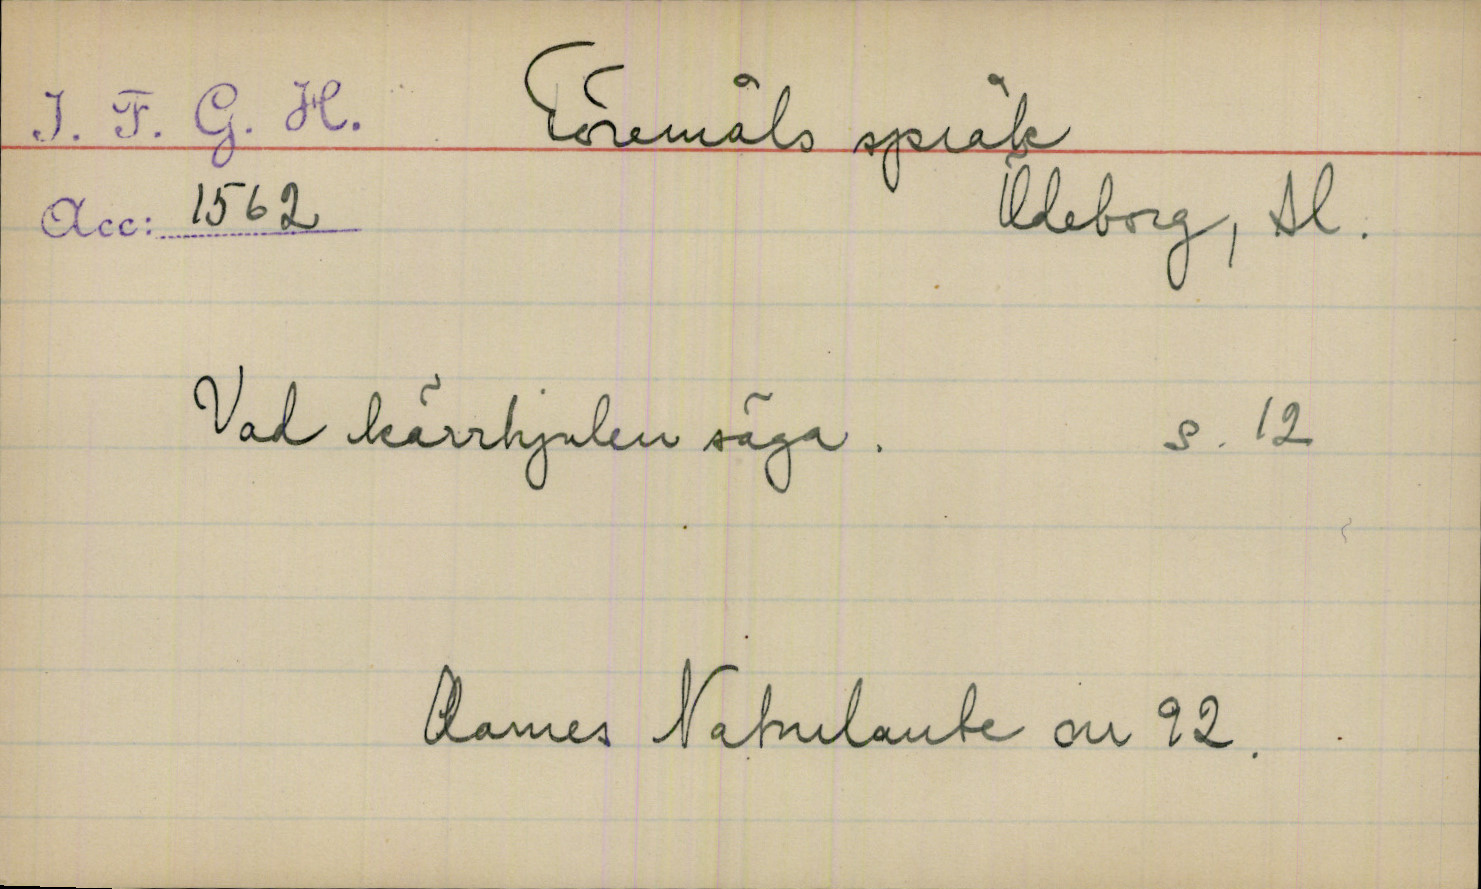 I. F. G. H. Föremåls språk
Acc: 1562 Ödeborg, Dl.
Vad kärrhjulen säga. s. 12
Aarnes Naturlaute nr 92.